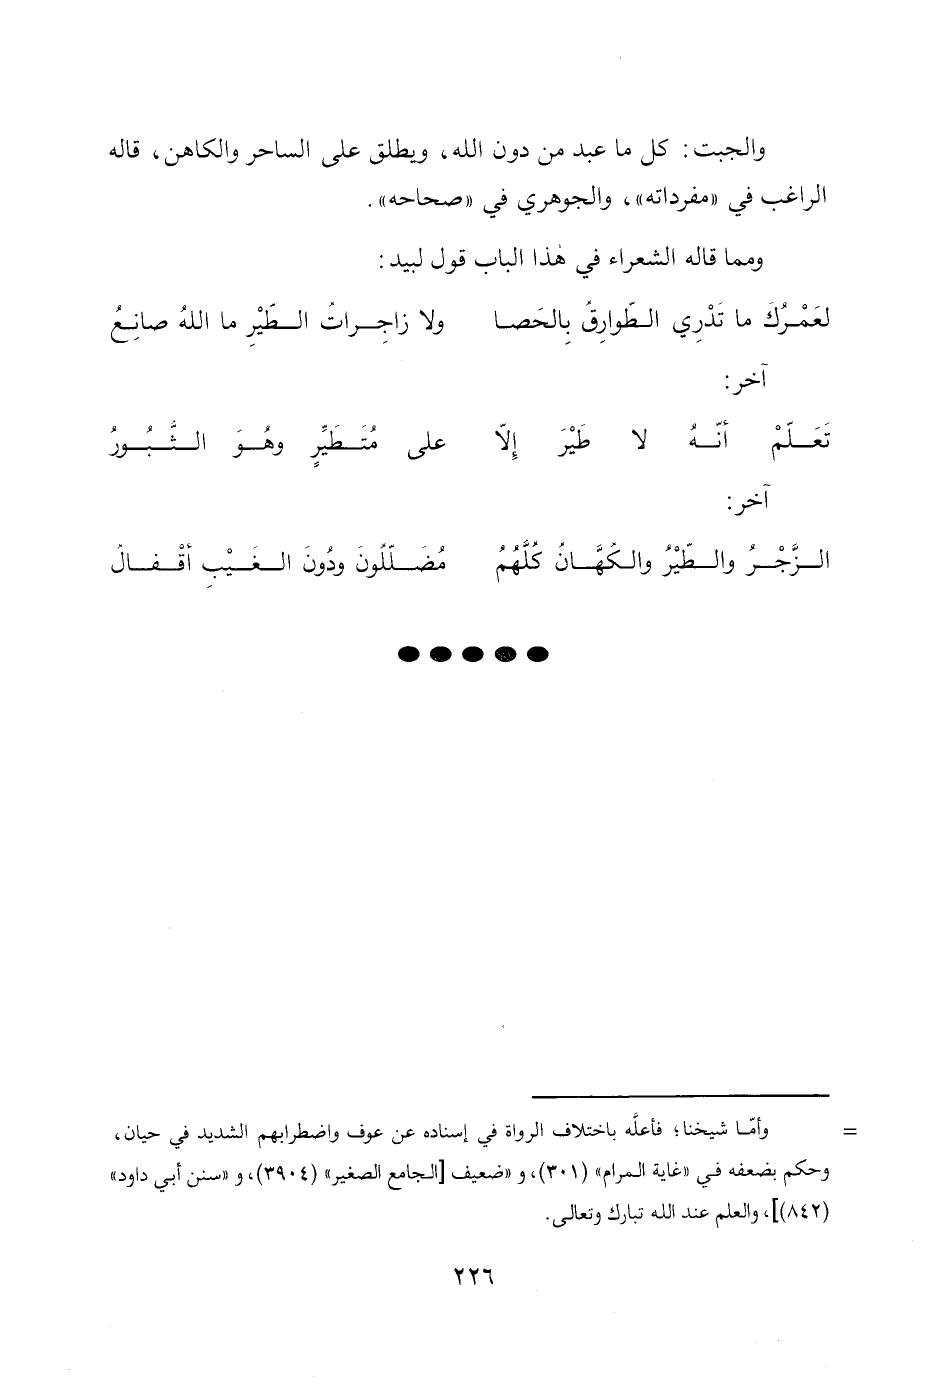 والجبت: كل ما عبد من دون الله، ويطلق على الساحر والكاهن، قاله
الراغب في «مفرداته»، والجوهري في «صحاحه».
ومما قاله الشعراء في هٰذا الباب قول لبيد:
لعَمْرُكَ ما تَدْرِي الطّوارِقُ بِالحَصا ولا زاجِراتُ الطّيْرِ ما اللهُ صانِعُ
آخر:
تَعَلّمْ أنّهُ لا طَيْرَ إِلّا على مُتَطَيِّرٍ وهُوَ الثُّبُورُ
آخر:
الزَّجْرُ والطّيْرُ والكُهَّانُ كُلُّهُمُ مُضَلّلُونَ ودُونَ الغَيْبِ أقْفالُ
= وأمّا شيخنا؛ فأعلَّه باختلاف الرواة في إسناده عن عوف واضطرابهم الشديد في حيان،
وحكم بضعفه في «غاية المرام» (٣٠١)، و «ضعيف [الجامع الصغير» (٣٩٠٤)، و «سنن أبي داود»
(٨٤٢)]، والعلم عند الله تبارك وتعالى.
٢٢٦